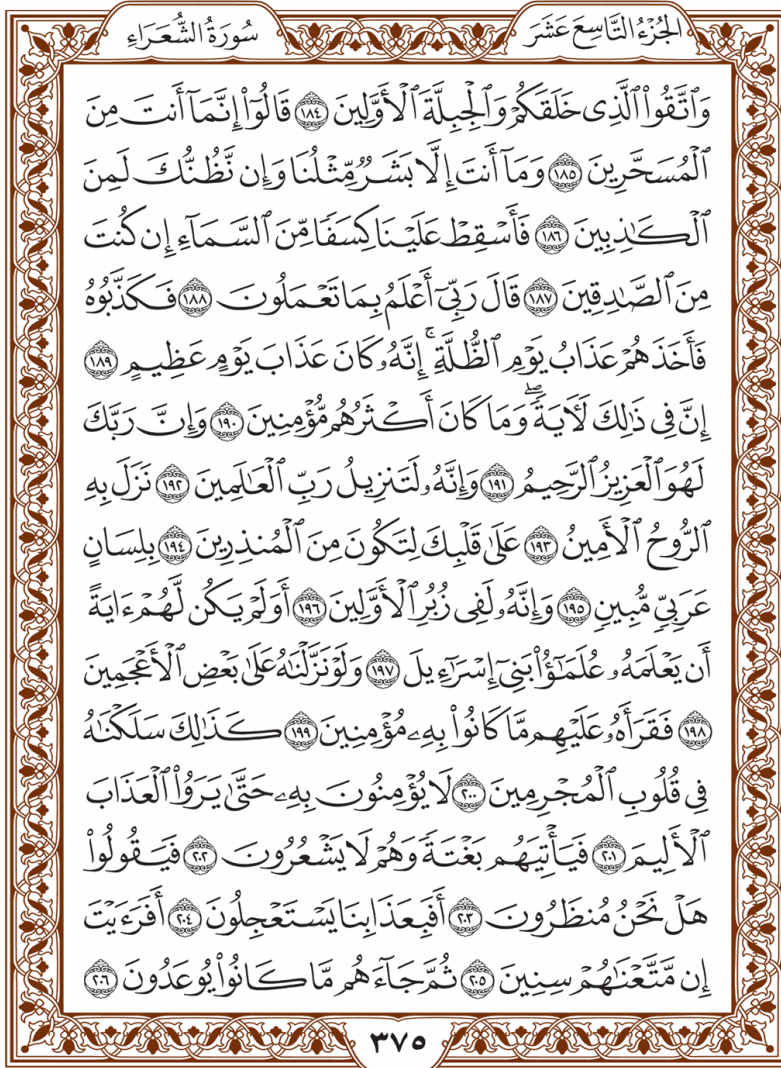 الجُزْءُ التَّاسِعَ عَشَرَ
سُورَةُ الشُّعَرَاءِ
وَٱتَّقُوا۟ ٱلَّذِى خَلَقَكُمْ وَٱلْجِبِلَّةَ ٱلْأَوَّلِينَ ١٨٤ قَالُوٓا۟ إِنَّمَآ أَنتَ مِنَ
ٱلْمُسَحَّرِينَ ١٨٥ وَمَآ أَنتَ إِلَّا بَشَرٌ مِّثْلُنَا وَإِن نَّظُنُّكَ لَمِنَ
ٱلْكَٰذِبِينَ ١٨٦ فَأَسْقِطْ عَلَيْنَا كِسَفًا مِّنَ ٱلسَّمَآءِ إِن كُنتَ
مِنَ ٱلصَّٰدِقِينَ ١٨٧ قَالَ رَبِّىٓ أَعْلَمُ بِمَا تَعْمَلُونَ ١٨٨ فَكَذَّبُوهُ
فَأَخَذَهُمْ عَذَابُ يَوْمِ ٱلظُّلَّةِ ۚ إِنَّهُۥ كَانَ عَذَابَ يَوْمٍ عَظِيمٍ ١٨٩
إِنَّ فِى ذَٰلِكَ لَـَٔايَةً ۖ وَمَا كَانَ أَكْثَرُهُم مُّؤْمِنِينَ ١٩٠ وَإِنَّ رَبَّكَ
لَهُوَ ٱلْعَزِيزُ ٱلرَّحِيمُ ١٩١ وَإِنَّهُۥ لَتَنزِيلُ رَبِّ ٱلْعَٰلَمِينَ ١٩٢ نَزَلَ بِهِ
ٱلرُّوحُ ٱلْأَمِينُ ١٩٣ عَلَىٰ قَلْبِكَ لِتَكُونَ مِنَ ٱلْمُنذِرِينَ ١٩٤ بِلِسَانٍ
عَرَبِىٍّ مُّبِينٍ ١٩٥ وَإِنَّهُۥ لَفِى زُبُرِ ٱلْأَوَّلِينَ ١٩٦ أَوَلَمْ يَكُن لَّهُمْ ءَايَةً
أَن يَعْلَمَهُۥ عُلَمَٰٓؤُا۟ بَنِىٓ إِسْرَٰٓءِيلَ ١٩٧ وَلَوْ نَزَّلْنَٰهُ عَلَىٰ بَعْضِ ٱلْأَعْجَمِينَ
١٩٨ فَقَرَأَهُۥ عَلَيْهِم مَّا كَانُوا۟ بِهِۦ مُؤْمِنِينَ ١٩٩ كَذَٰلِكَ سَلَكْنَٰهُ
فِى قُلُوبِ ٱلْمُجْرِمِينَ ٢٠٠ لَا يُؤْمِنُونَ بِهِۦ حَتَّىٰ يَرَوُا۟ ٱلْعَذَابَ
ٱلْأَلِيمَ ٢٠١ فَيَأْتِيَهُم بَغْتَةً وَهُمْ لَا يَشْعُرُونَ ٢٠٢ فَيَقُولُوا۟
هَلْ نَحْنُ مُنظَرُونَ ٢٠٣ أَفَبِعَذَابِنَا يَسْتَعْجِلُونَ ٢٠٤ أَفَرَءَيْتَ
إِن مَّتَّعْنَٰهُمْ سِنِينَ ٢٠٥ ثُمَّ جَآءَهُم مَّا كَانُوا۟ يُوعَدُونَ ٢٠٦
٣٧٥